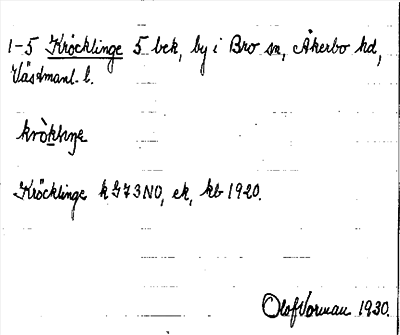 1-5 Kröcklinge 5 bek, by i Bro sn, Åkerbo hd,
Västmanl. l.
Kröcklinge k G73NO, ek, kb 1920.
Olof Vorman 1930.